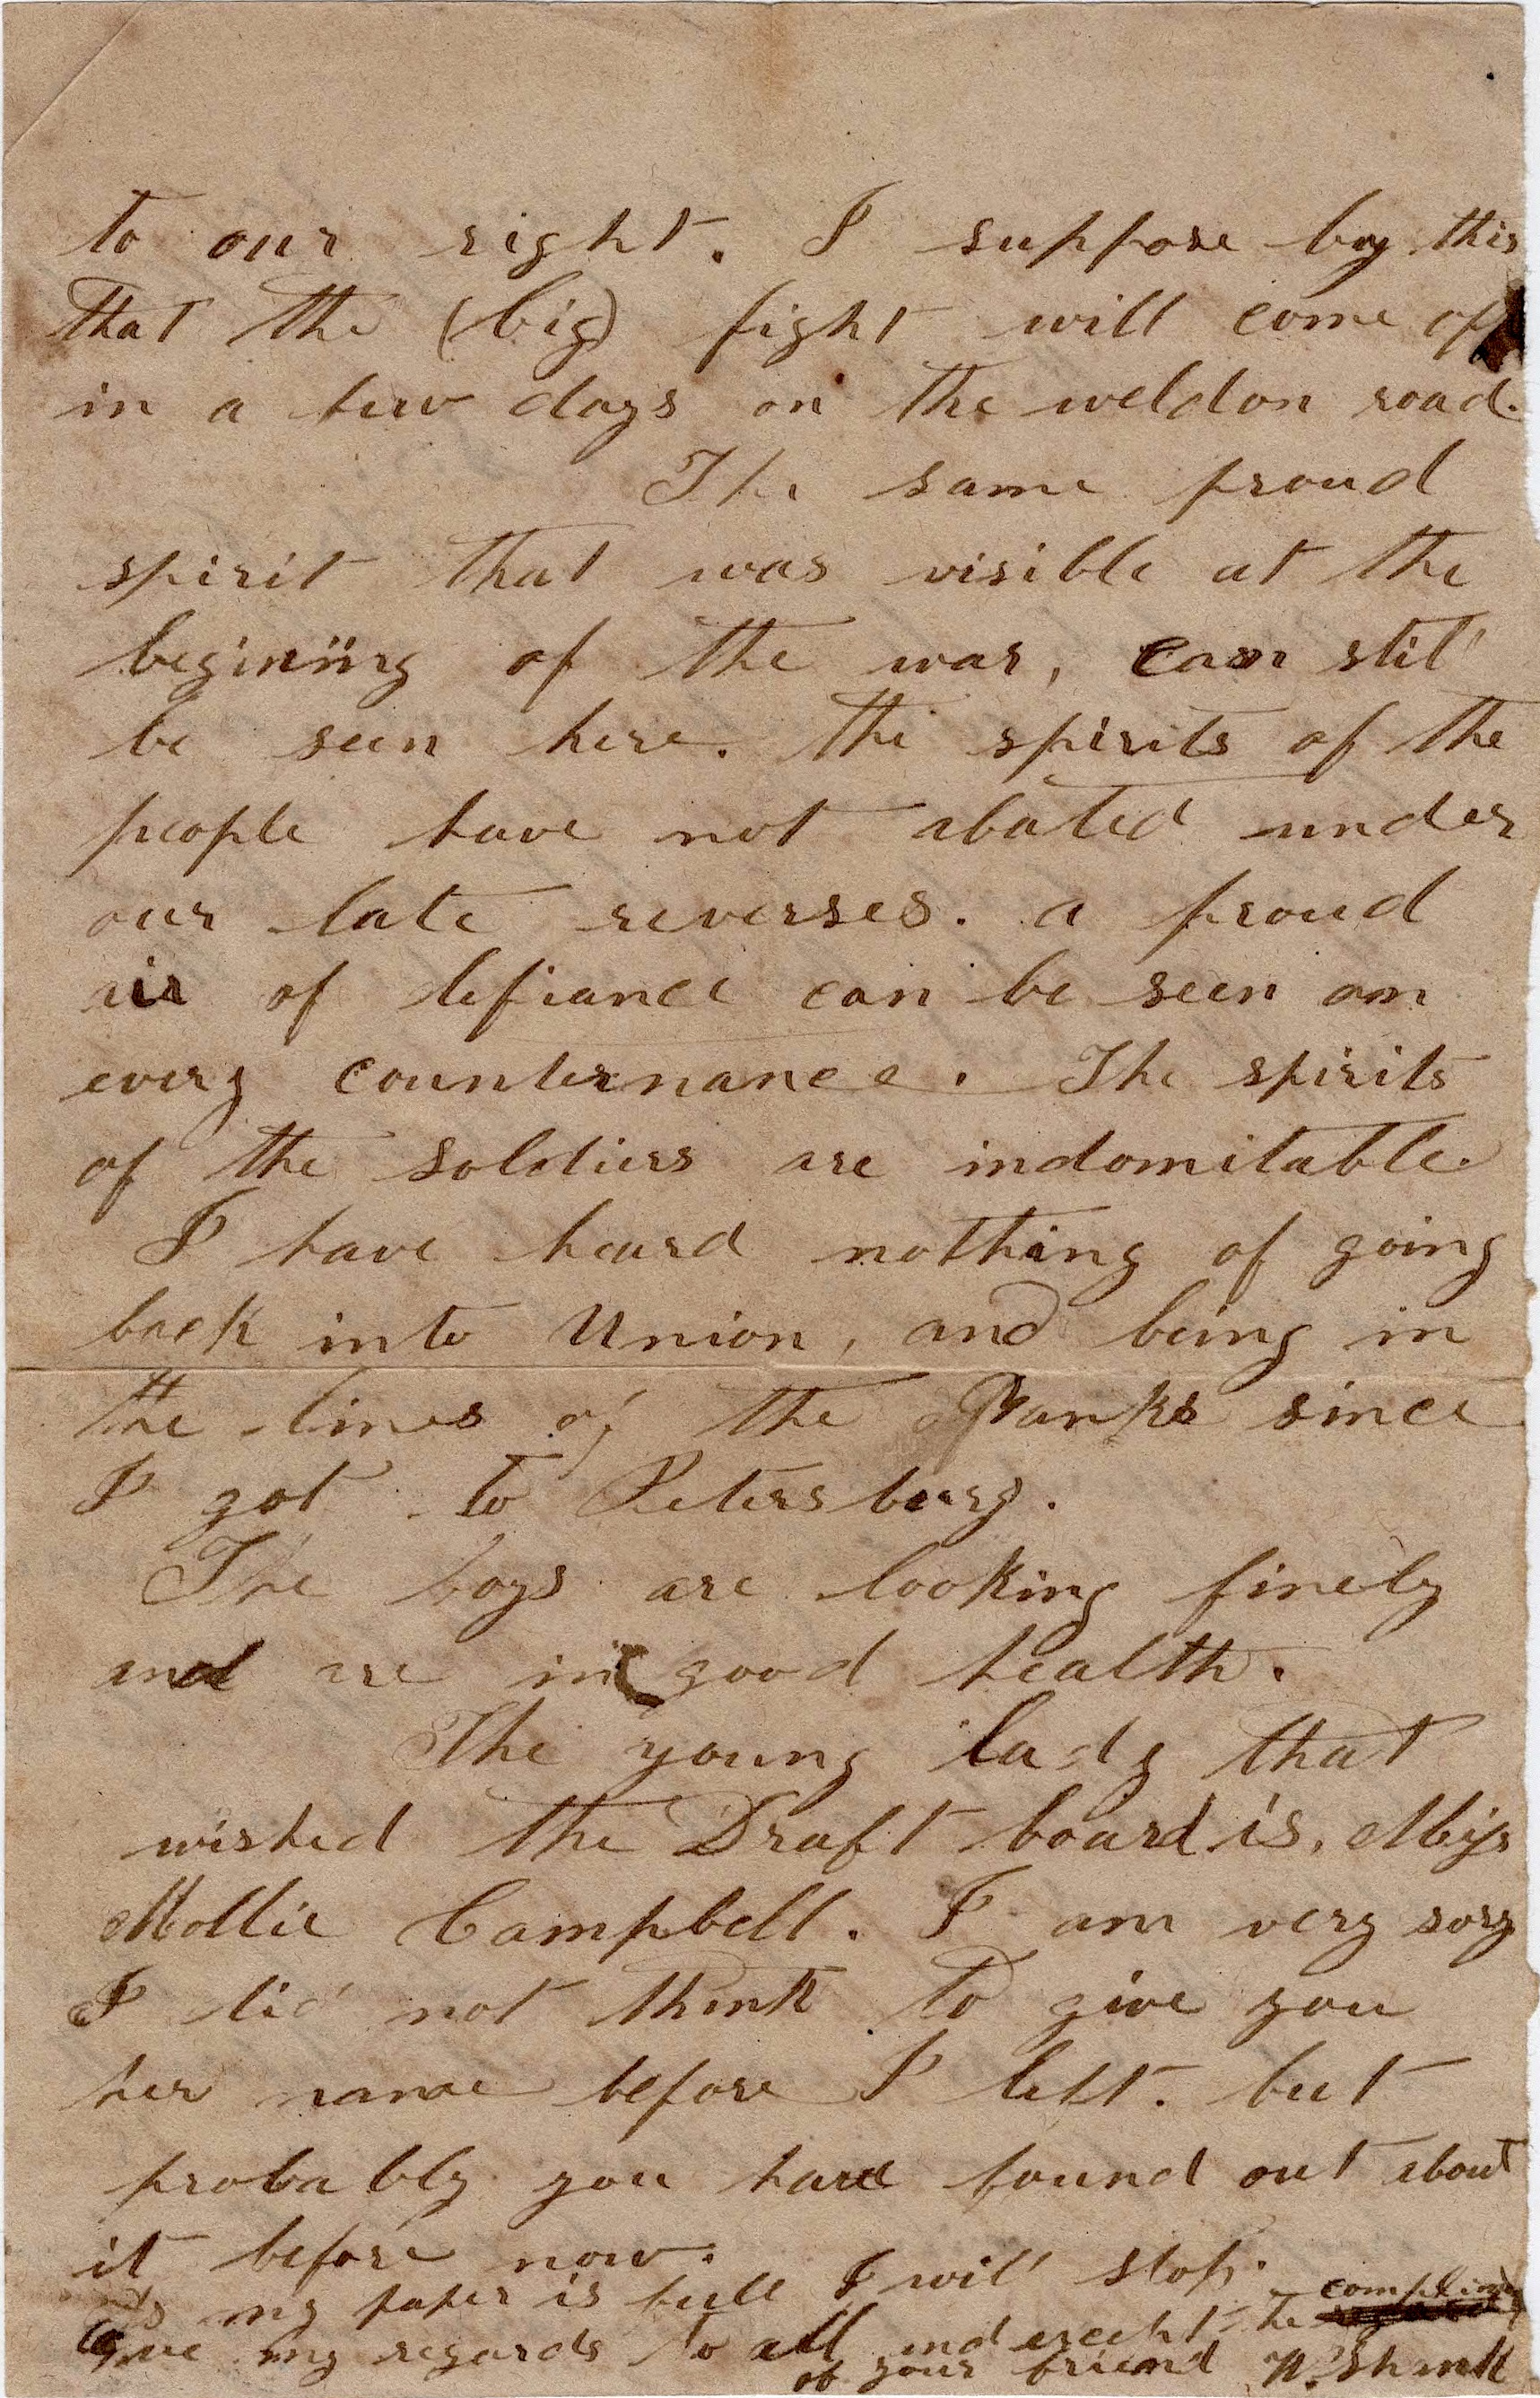 to our right. I suppose by this
that the (big) fight will come of
in a few days on the weldon road.
The same proud
spirit that was visible at the
begining of the war, can still
be seen here. the spirits of the
people have not abated under
our late reverses. a proud
air of defiance can be seen on
every counternance. The spirits
of the soldiers are indomitable.
I have heard nothing of going
back into Union, and being in
the lines of the Yanks since
I got to Petersburg.
The boys are looking finely
and are in good health.
The young lady that
wished the Draft board is, Miss
Mollie Campbell. I am very sory
I did not think to give you
her name before I left. but
probably you have found out about
it before now.
As my paper is full I will stop.
Give my regards to all and except the compliments
of your friend W. Shank